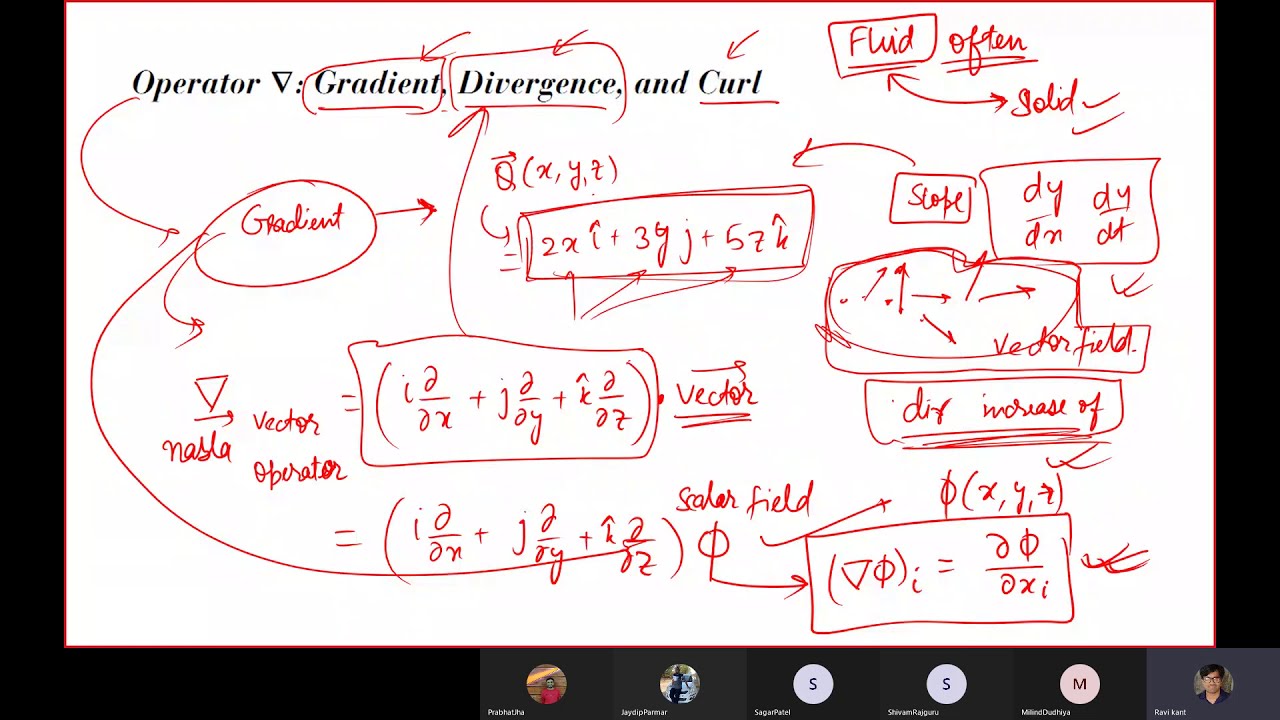 Operator ∇: Gradient, Divergence, and Curl
Fluid often
Solid
Q⃗(x, y, z)
= 2x î + 3y j + 5z k̂
Slope
dy/dx dy/dt
Gradient
vector field.
dir increase of
∇ = (i ∂/∂x + j ∂/∂y + k̂ ∂/∂z) . vector
nabla vector
operator
scalar field
ϕ(x, y, z)
= (i ∂/∂x + j ∂/∂y + k̂ ∂/∂z) ϕ
(∇ϕ)i = ∂ϕ/∂xi
PrabhatJha
JaydipParmar
S
SagarPatel
S
ShivamRajguru
M
MilindDudhiya
Ravi kant